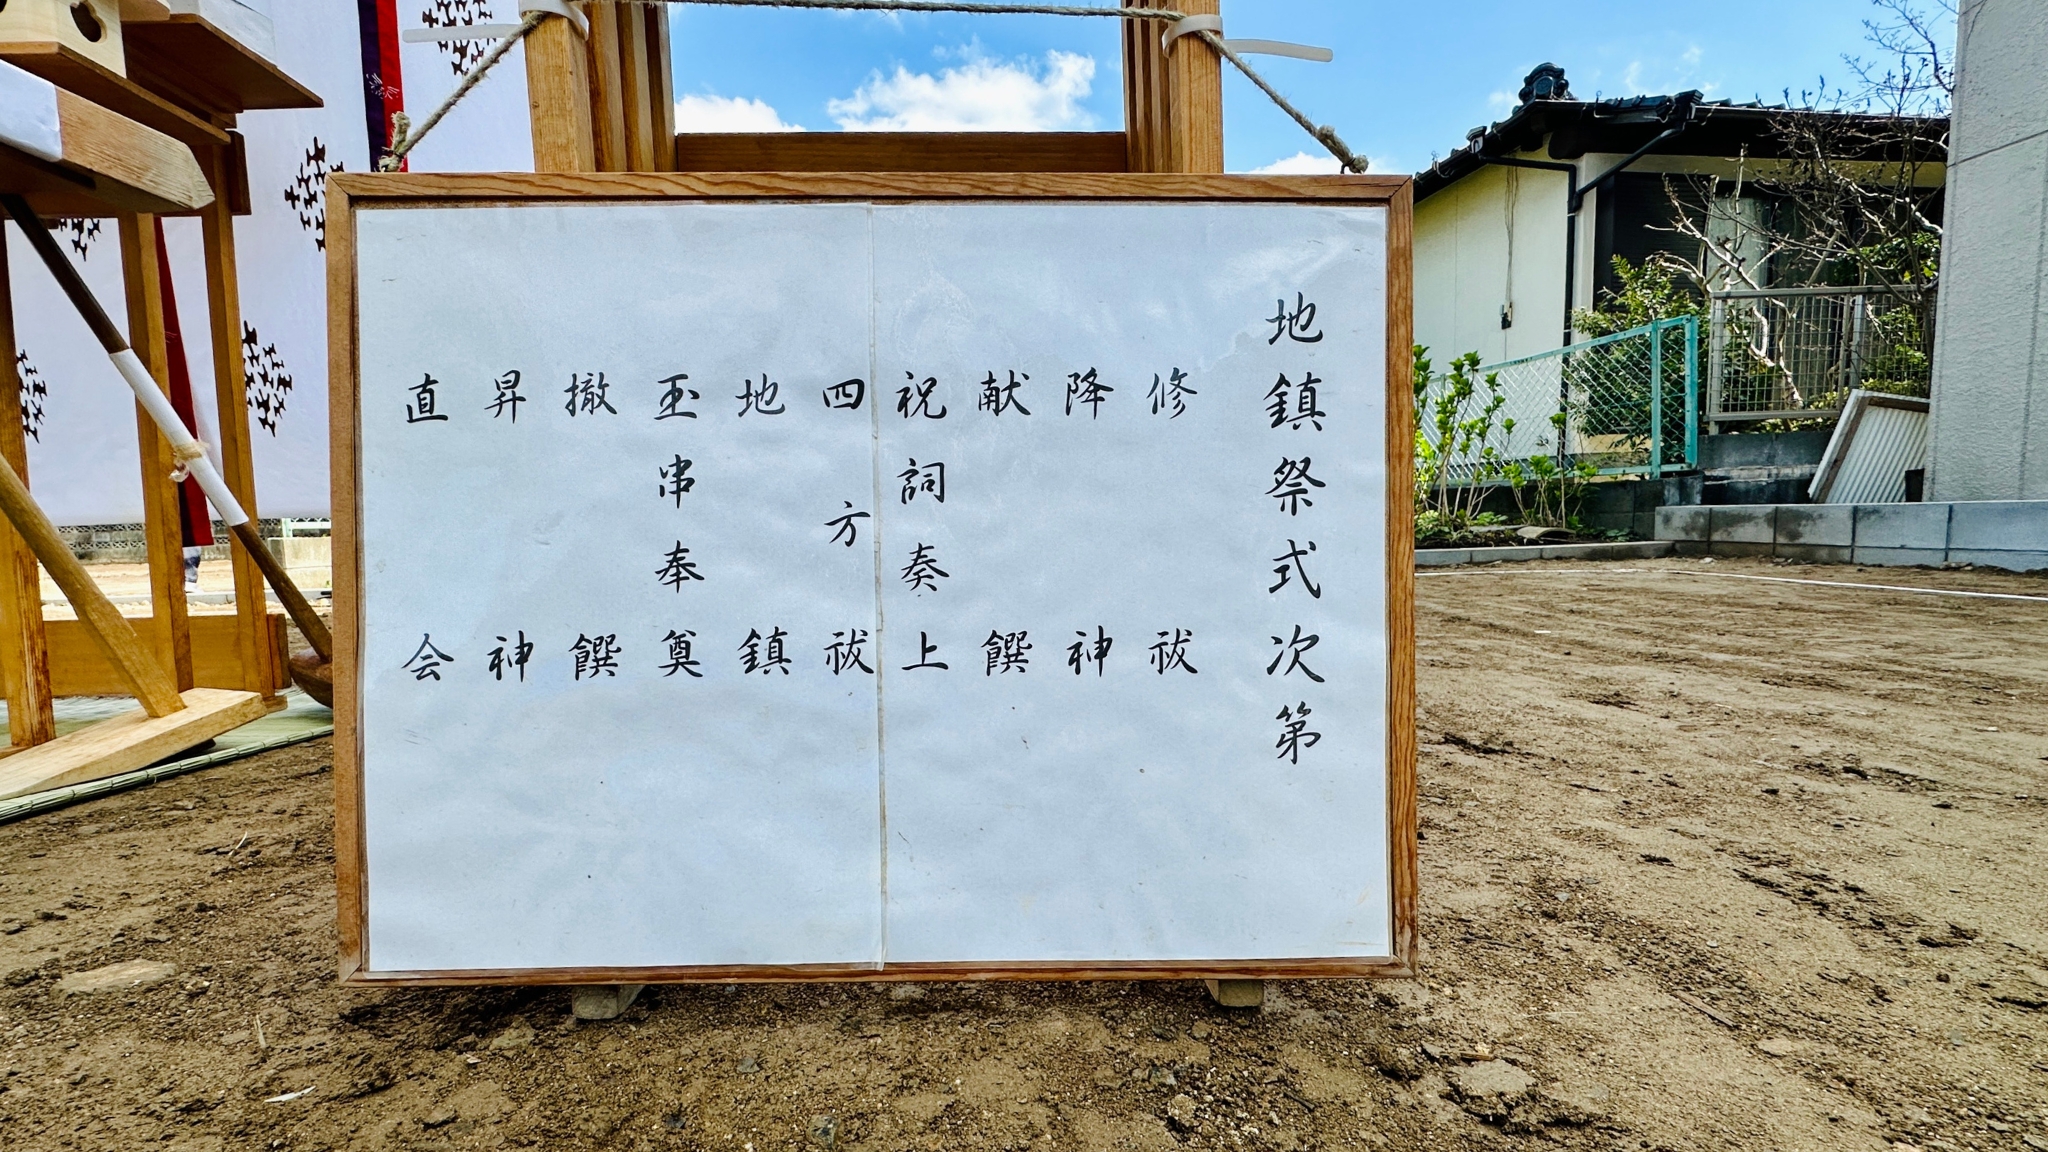 地鎮祭式次第
修祓
降神
献饌
祝詞奏上
四方祓
地鎮
玉串奉奠
撤饌
昇神
直会